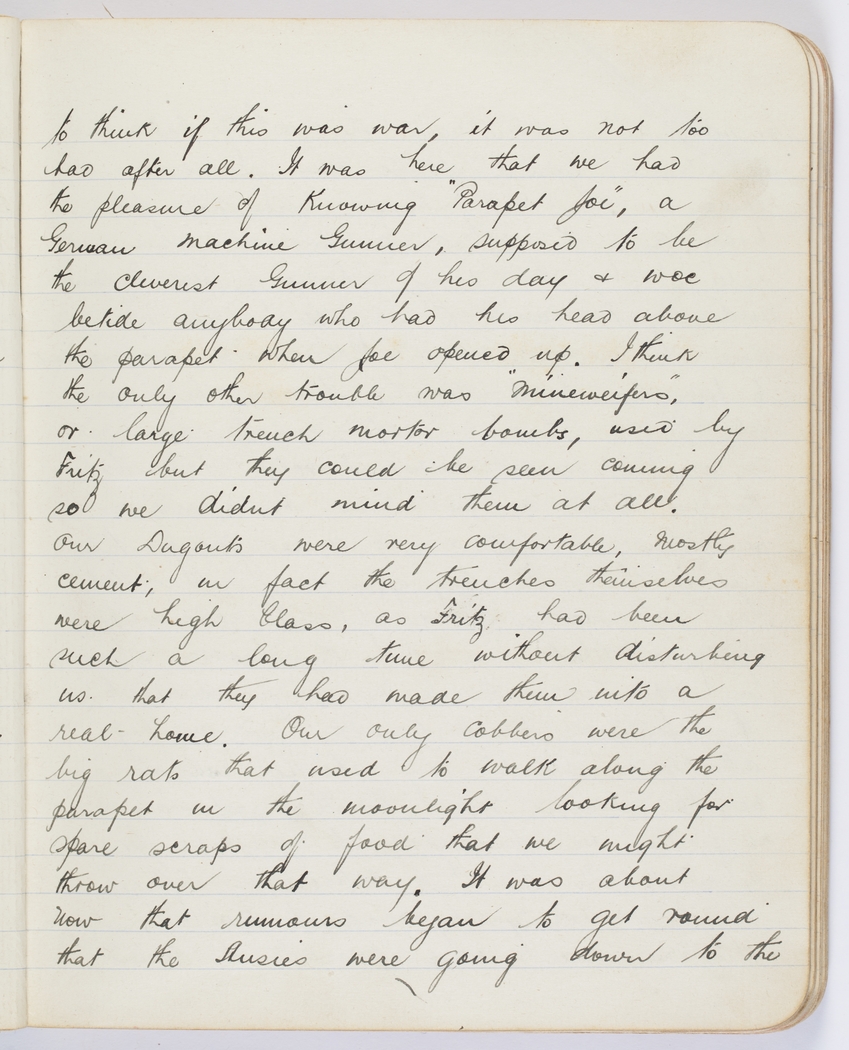 to think if this was war, it was not too
bad after all. It was here that we had
the pleasure of Knowing "Parapet Joe", a
German Machine Gunner, supposed to be
the cleverest Gunner of his day & woe
betide anybody who had his head above
the parapet when Joe opened up. I think
the only other trouble was "Mineweifers",
or large trench mortor bombs, used by
Fritz but they could be seen coming
so we didnt mind them at all.
Our Dugouts were very comfortable, Mostly
cement, in fact the trenches themselves
were high Class, as Fritz had been
such a long time without disturbing
us that they had made them into a
real home. Our only Cobbers were the
big rats that used to walk along the
parapet in the moonlight looking for
spare scraps of food that we might
throw over that way. It was about
now that rumours began to get round
that the Ausies were going down to the